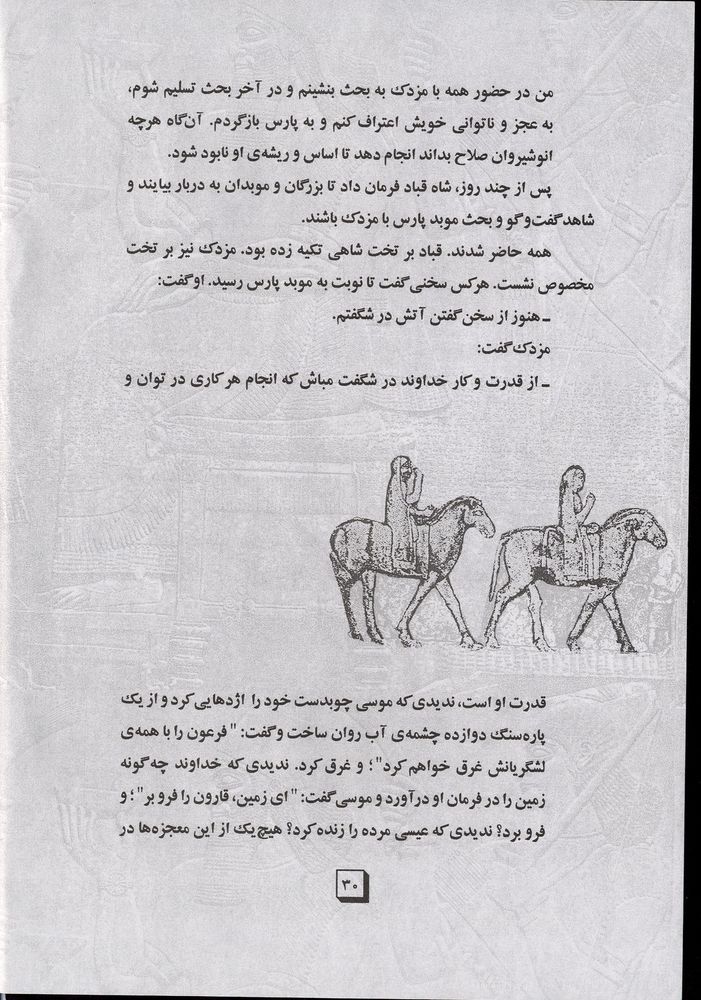 من در حضور همه با مزدک به بحث بنشینم و در آخر بحث تسلیم شوم،
به عجز و ناتوانی خویش اعتراف کنم و به پارس بازگردم. آن‌گاه هرچه
انوشیروان صلاح بداند انجام دهد تا اساس و ریشه‌ی او نابود شود.
پس از چند روز، شاه قباد فرمان داد تا بزرگان و موبدان به دربار بیایند و
شاهد گفت‌وگو و بحث موبد پارس با مزدک باشند.
همه حاضر شدند. قباد بر تخت شاهی تکیه زده بود. مزدک نیز بر تخت
مخصوص نشست. هرکس سخنی گفت تا نوبت به موبد پارس رسید. او گفت:
ـ هنوز از سخن گفتن آتش در شگفتم.
مزدک گفت:
ـ از قدرت و کار خداوند در شگفت مباش که انجام هر کاری در توان و
قدرت او است، ندیدی که موسی چوبدست خود را اژدهایی کرد و از یک
پاره‌سنگ دوازده چشمه‌ی آب روان ساخت و گفت: "فرعون را با همه‌ی
لشگریانش غرق خواهم کرد"؛ و غرق کرد. ندیدی که خداوند چه‌گونه
زمین را در فرمان او درآورد و موسی گفت: "ای زمین، قارون را فرو بر"؛ و
فرو برد؟ ندیدی که عیسی مرده را زنده کرد؟ هیچ یک از این معجزه‌ها در
۳۰